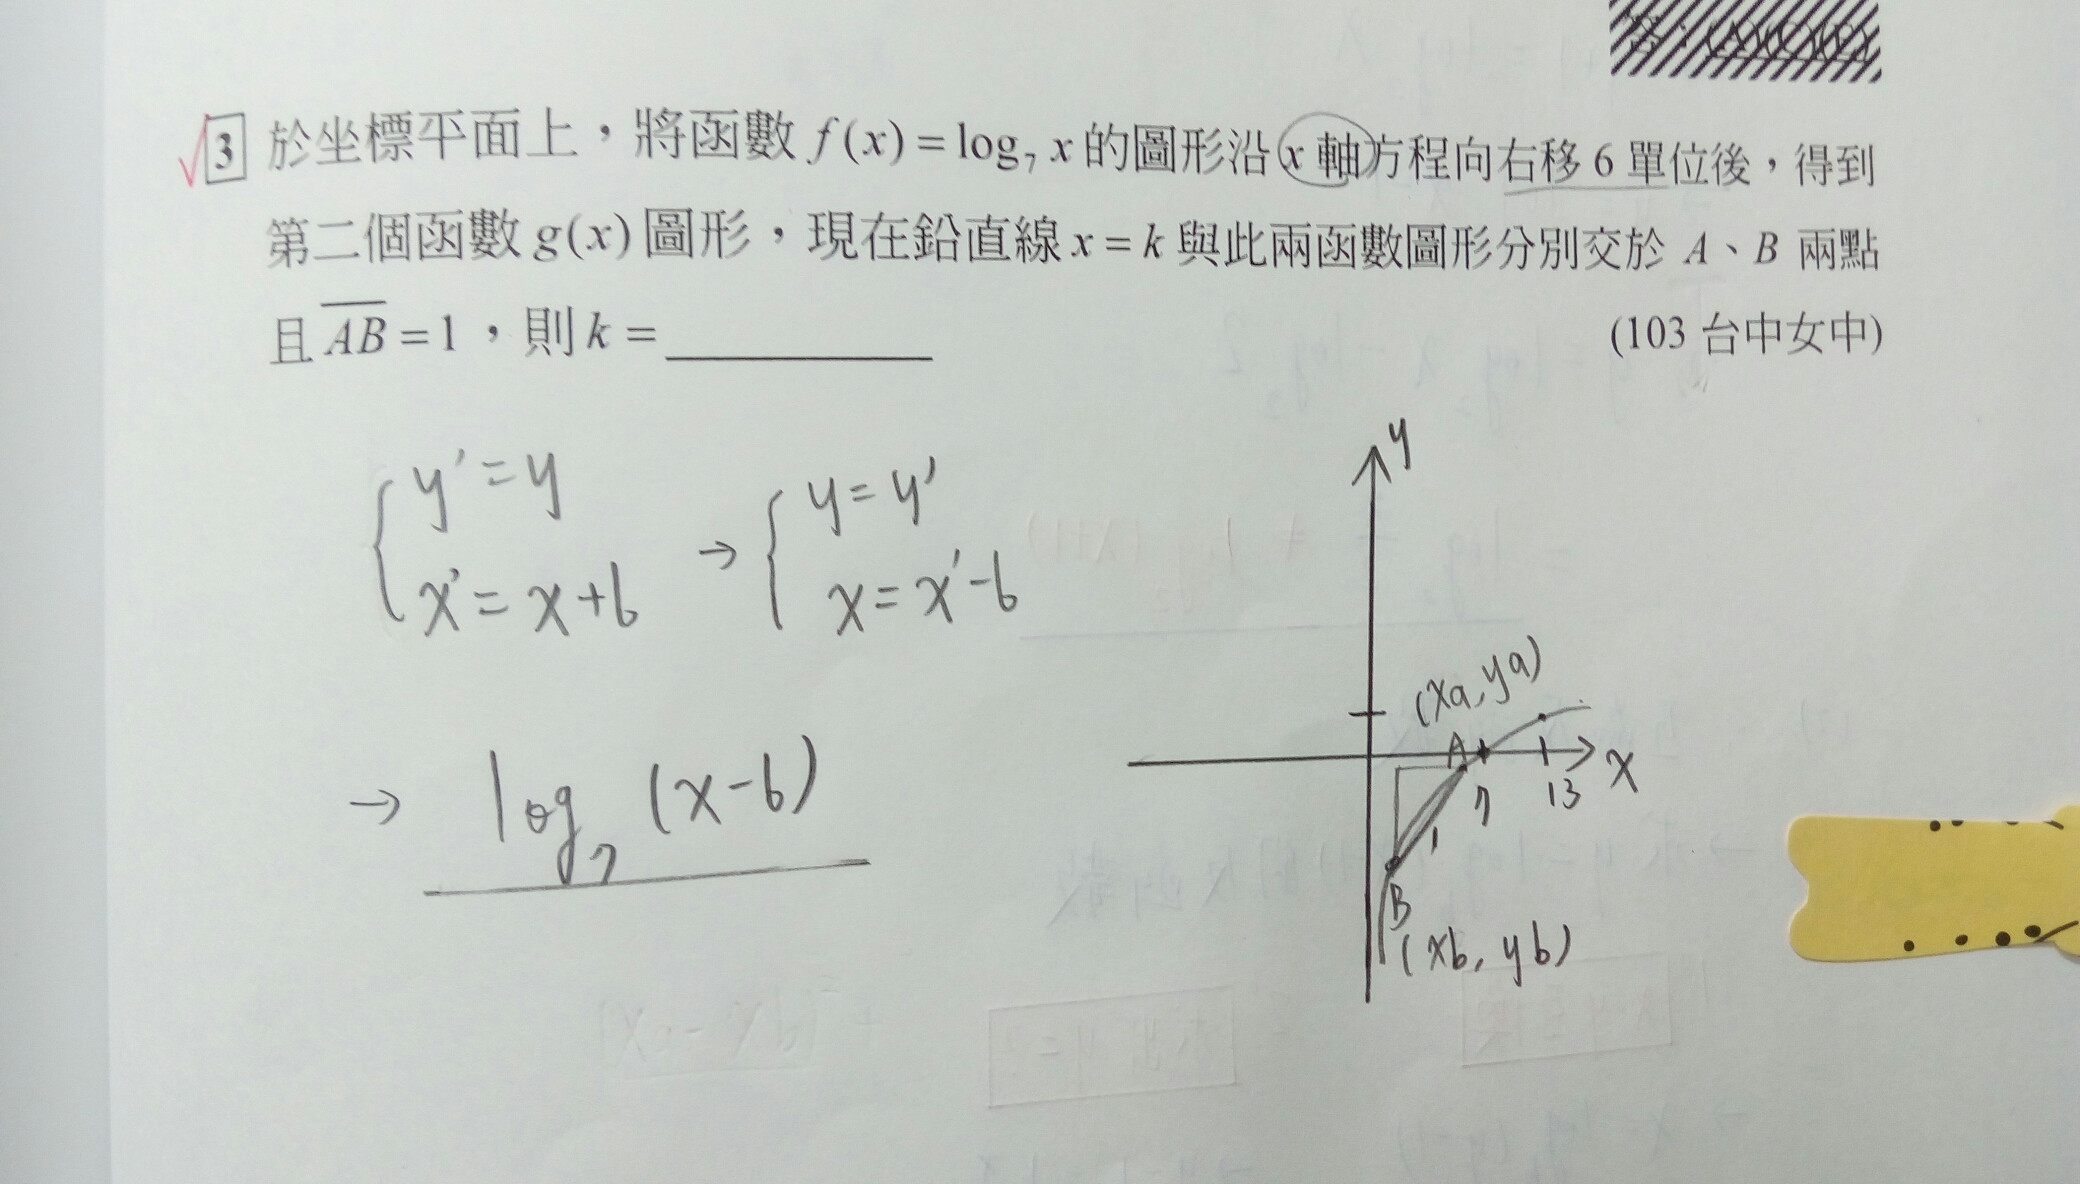 3 於坐標平面上，將函數 f(x) = log₇ x 的圖形沿 x 軸方程向右移 6 單位後，得到
第二個函數 g(x) 圖形，現在鉛直線 x = k 與此兩函數圖形分別交於 A、B 兩點
且 \overline{AB} = 1，則 k = ________ (103 台中女中)
{ y' = y
x' = x+6
→ { y = y'
x = x'-6
→ log₇ (x-6)
y
(xa, ya)
A
x
7
13
1
B
(xb, yb)